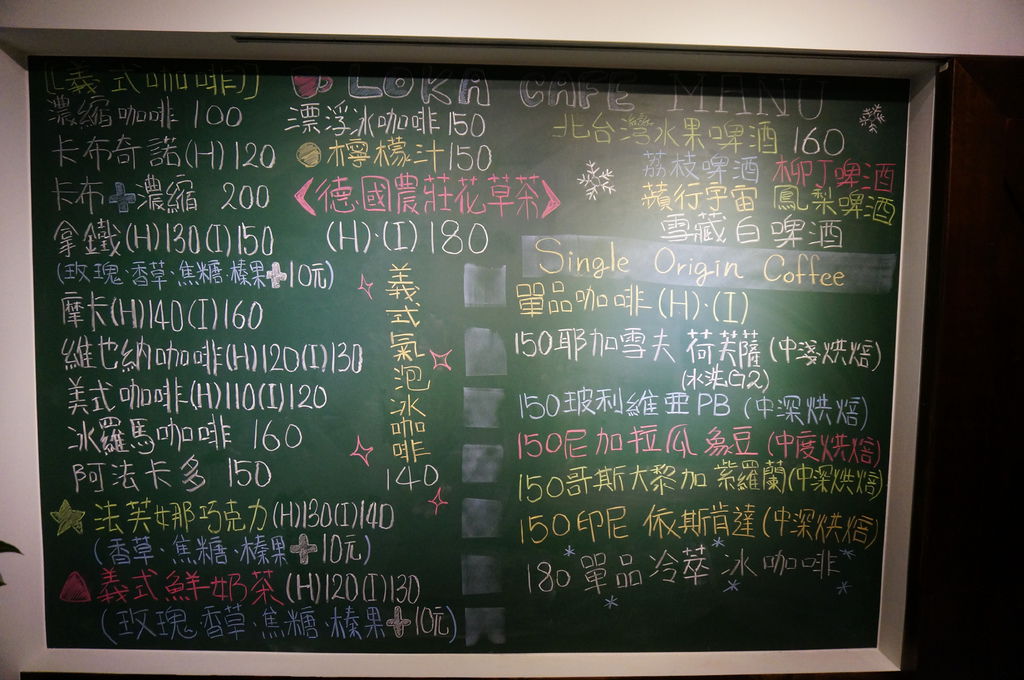 LOKA CAFE MANU
[義式咖啡]
濃縮咖啡 100
卡布奇諾(H)120
卡布+濃縮 200
拿鐵(H)130(I)150
(玫瑰·香草·焦糖·榛果+10元)
摩卡(H)140(I)160
維也納咖啡(H)120(I)130
美式咖啡(H)110(I)120
冰羅馬咖啡 160
阿法卡多 150
法芙娜巧克力(H)130(I)140
(香草·焦糖·榛果+10元)
義式鮮奶茶(H)120(I)130
(玫瑰·香草·焦糖·榛果+10元)
漂浮冰咖啡150
檸檬汁150
《德國農莊花草茶》
(H)·(I) 180
義式氣泡冰咖啡
140
北台灣水果啤酒 160
荔枝啤酒 柳丁啤酒
蘋行宇宙 鳳梨啤酒
雪藏白啤酒
Single Origin Coffee
單品咖啡(H)·(I)
150耶加雪夫 荷芙薩(中淺烘焙)
(水洗G2)
150玻利維亞PB (中深烘焙)
150尼加拉瓜 象豆(中度烘焙)
150哥斯大黎加 紫羅蘭(中深烘焙)
150印尼 依斯肯達(中深烘焙)
180 單品冷萃冰咖啡